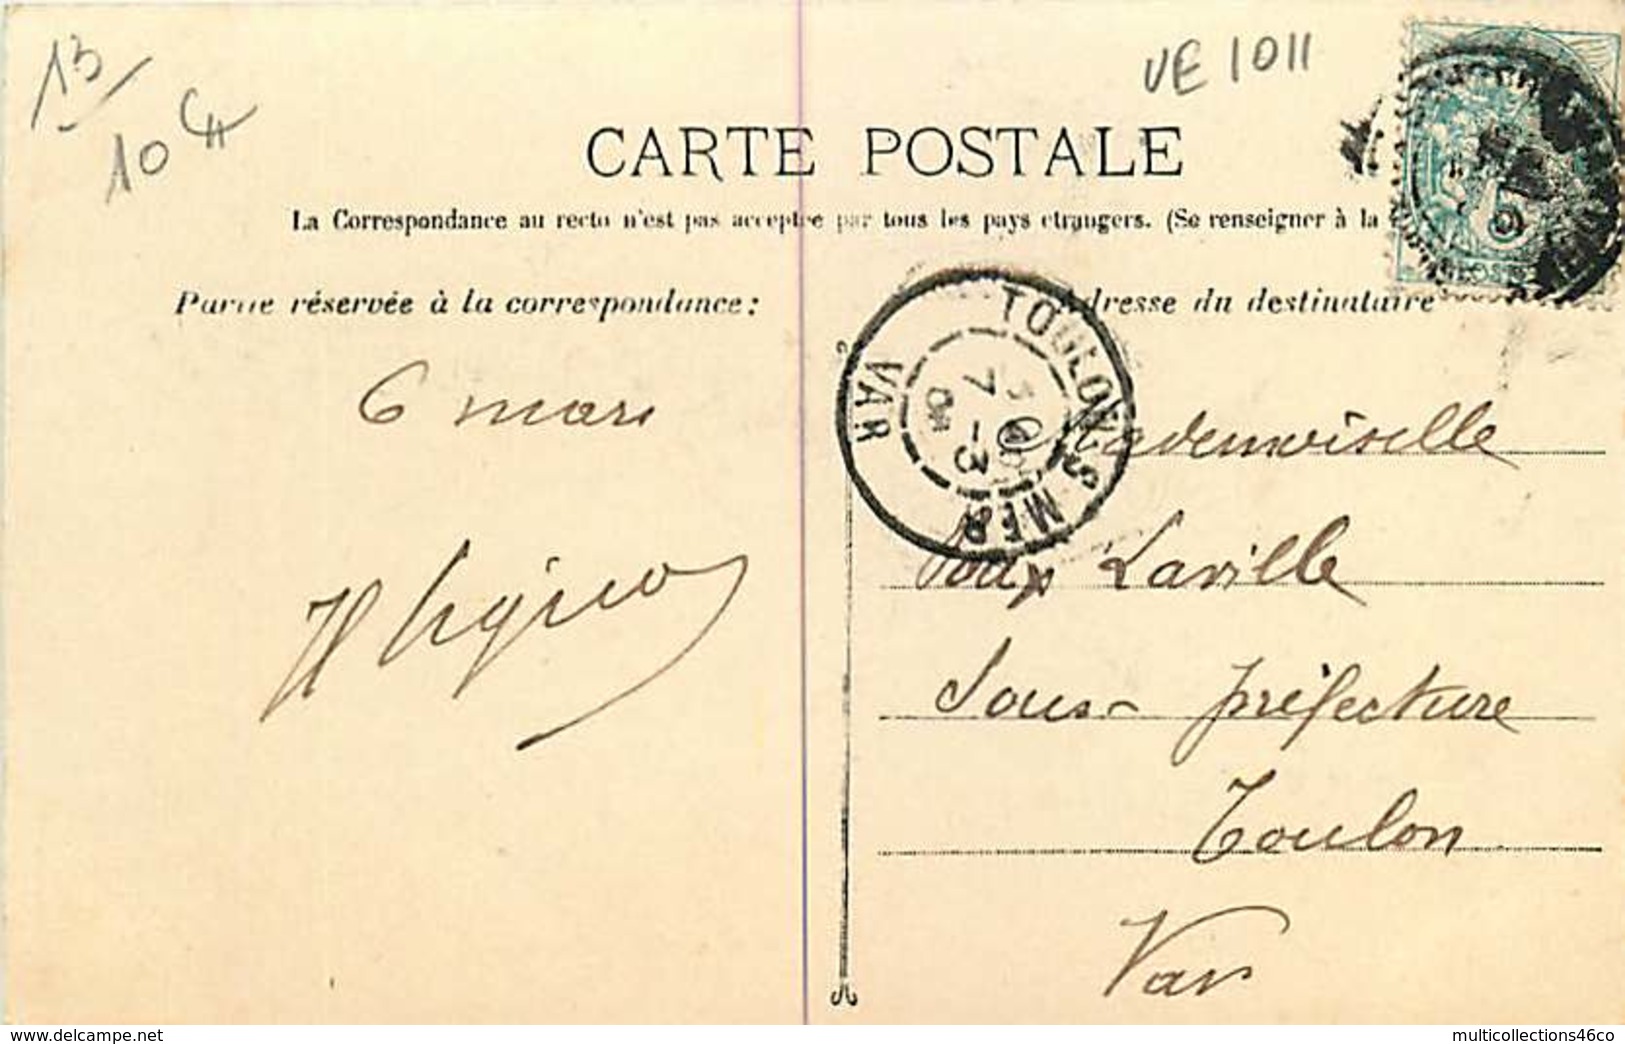 13
10
VE 1011
CARTE POSTALE
La Correspondance au recto n'est pas acceptée par tous les pays étrangers. (Se renseigner à la
Partie réservée à la correspondance:
Adresse du destinataire
TOULON S MER
VAR
7 -3
6 mars
Mademoiselle
Roux Laville
Sous-préfecture
Toulon
Var
delcampe.net
multicollections46co